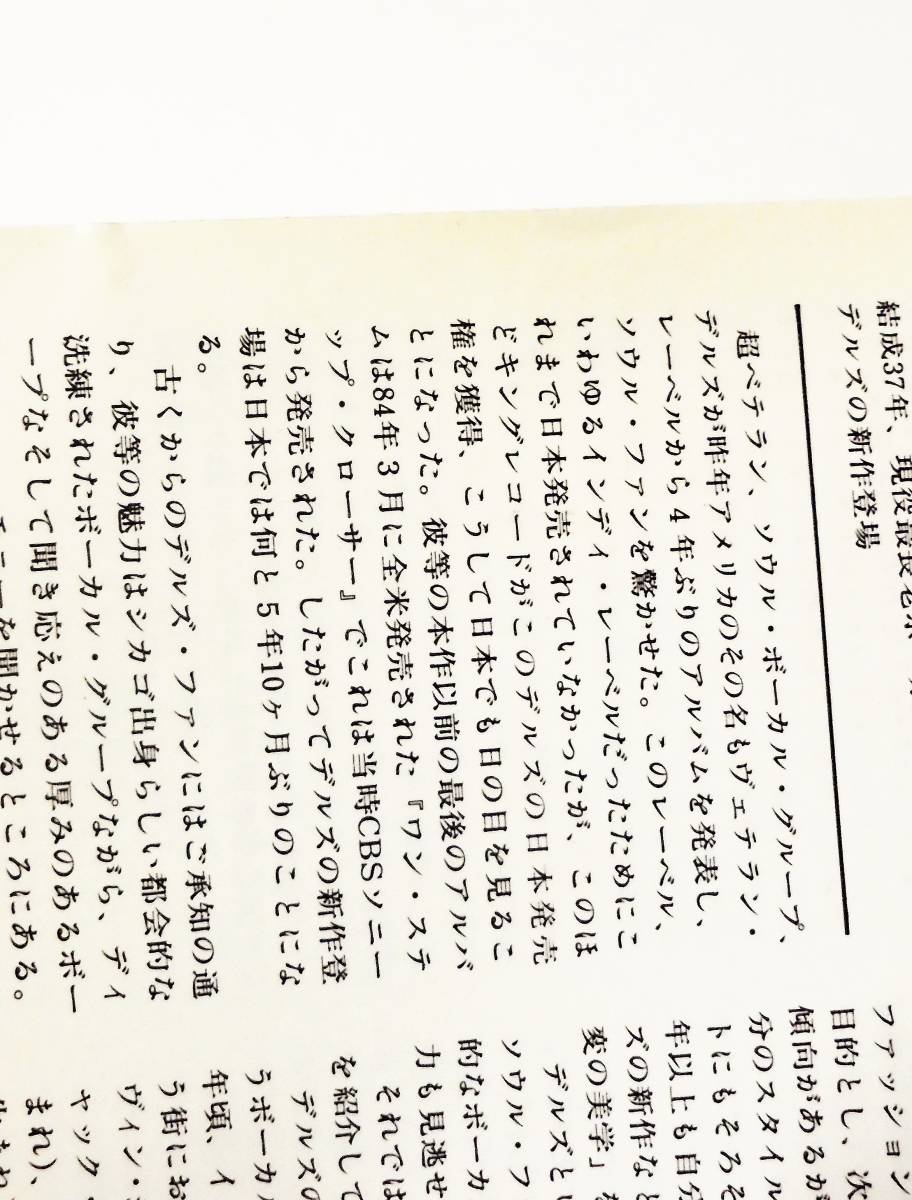 結成37年、現役最長老
デルズの新作登場
超ベテラン、ソウル・ボーカル・グループ、
デルズが昨年アメリカのその名もヴェテラン・
レーベルから4年ぶりのアルバムを発表し、
ソウル・ファンを驚かせた。このレーベル、
いわゆるインディ・レーベルだったためにこ
れまで日本発売されていなかったが、このほ
どキングレコードがこのデルズの日本発売
権を獲得、こうして日本でも日の目を見るこ
とになった。彼等の本作以前の最後のアルバ
ムは84年3月に全米発売された『ワン・ステ
ップ・クローサー』でこれは当時CBSソニー
から発売された。したがってデルズの新作登
場は日本では何と5年10ヶ月ぶりのことにな
る。
古くからのデルズ・ファンにはご承知の通
り、彼等の魅力はシカゴ出身らしい都会的な
洗練されたボーカル・グループながら、ディ
ープなそして聞き応えのある厚みのあるボー
を聞かせるところにある。
ファッション
目的とし、次
傾向があるが
分のスタイル
トにもそろそ
年以上も自分
ズの新作など
変の美学」
デルズとい
ソウル・フ
的なボーカ
力も見逃せ
それでは
を紹介して
デルズの
うボーカル
年頃、イ
う街にお
ヴィン・
ャック・
まれ)、